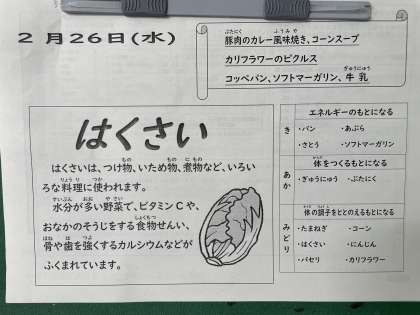 2月26日(水)
豚肉のカレー風味焼き、コーンスープ
カリフラワーのピクルス
コッペパン、ソフトマーガリン、牛乳
はくさい
はくさいは、つけ物、いため物、煮物など、いろい
ろな料理に使われます。
水分が多い野菜で、ビタミンCや、
おなかのそうじをする食物せんい、
骨や歯を強くするカルシウムなどが
ふくまれています。
き
エネルギーのもとになる
・パン ・あぶら
・さとう ・ソフトマーガリン
あか
体をつくるもとになる
・ぎゅうにゅう ・ぶたにく
みどり
体の調子をととのえるもとになる
・たまねぎ ・コーン
・はくさい ・にんじん
・パセリ ・カリフラワー